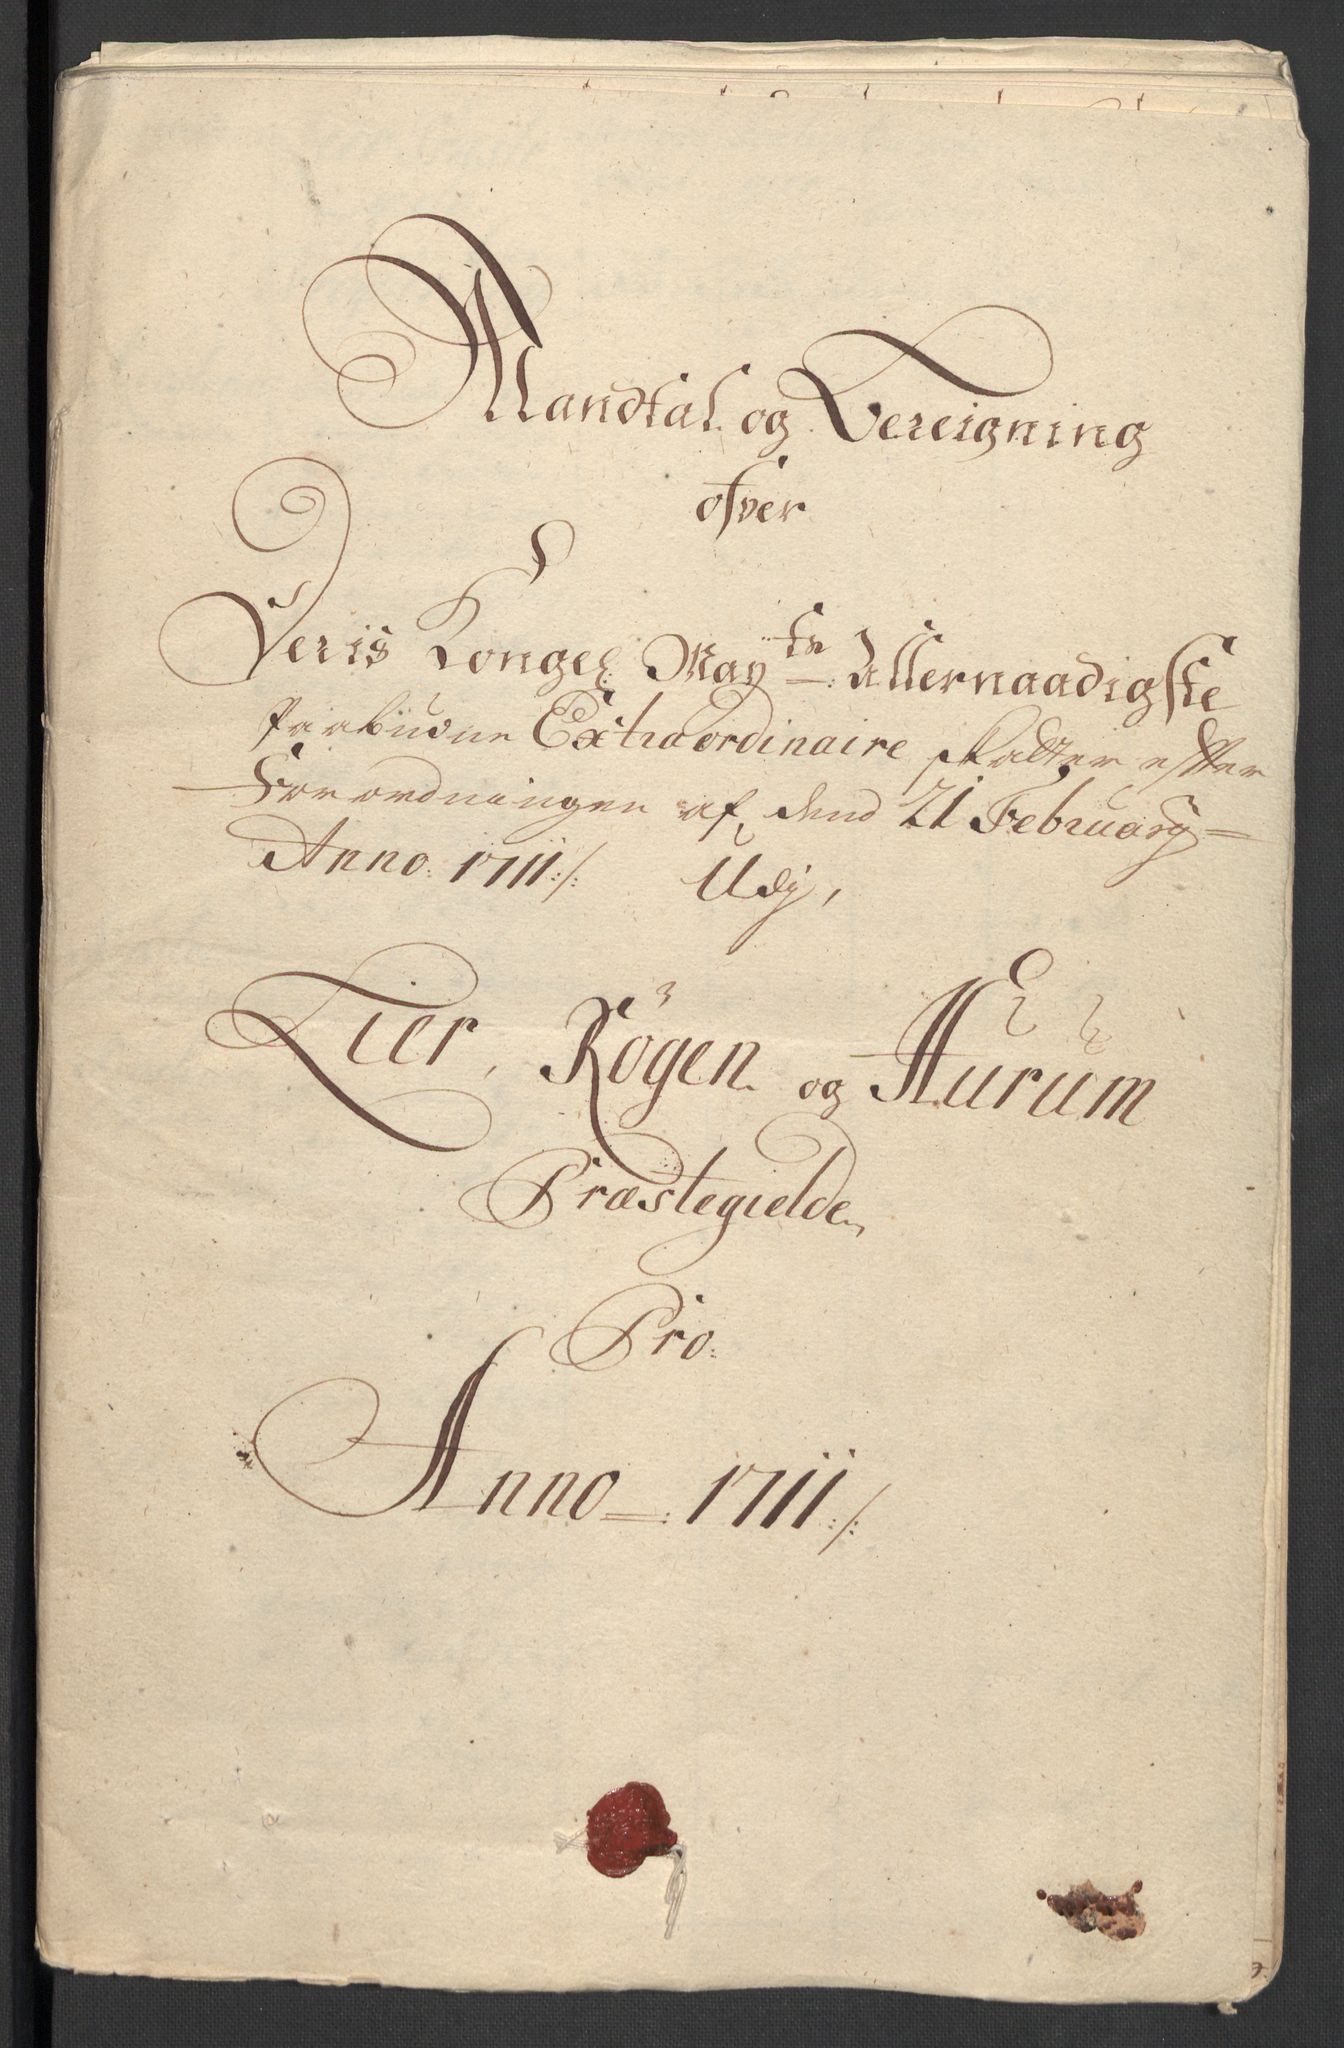 Mandtal og Bereigning
ofver
Deris Kongel: May:ts Allernaadigste
Paabudne Extraordinaire skatter efter
Forordningen af dend 21 Februarÿ
Anno: 1711:/: Udj,
Lier, Rögen og Hurum
Præstegielde,
Pro:
Anno 1711:/: